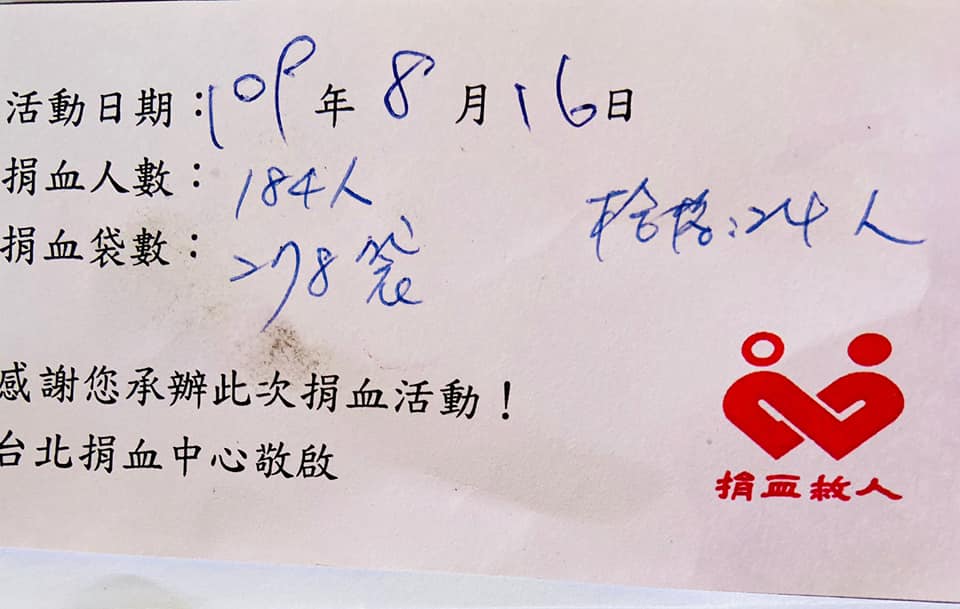 活動日期：109年8月16日
捐血人數：184人
捐血袋數：278袋
檢格：24人
感謝您承辦此次捐血活動！
台北捐血中心敬啟
捐血救人